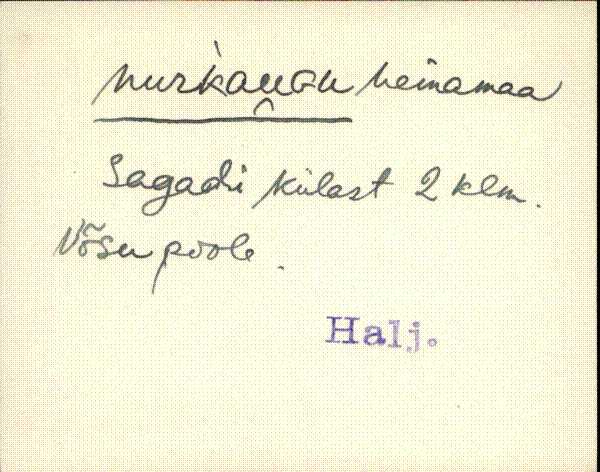 heinamaa
Sagadi külast 2 klm.
Võsu poole.
Halj.